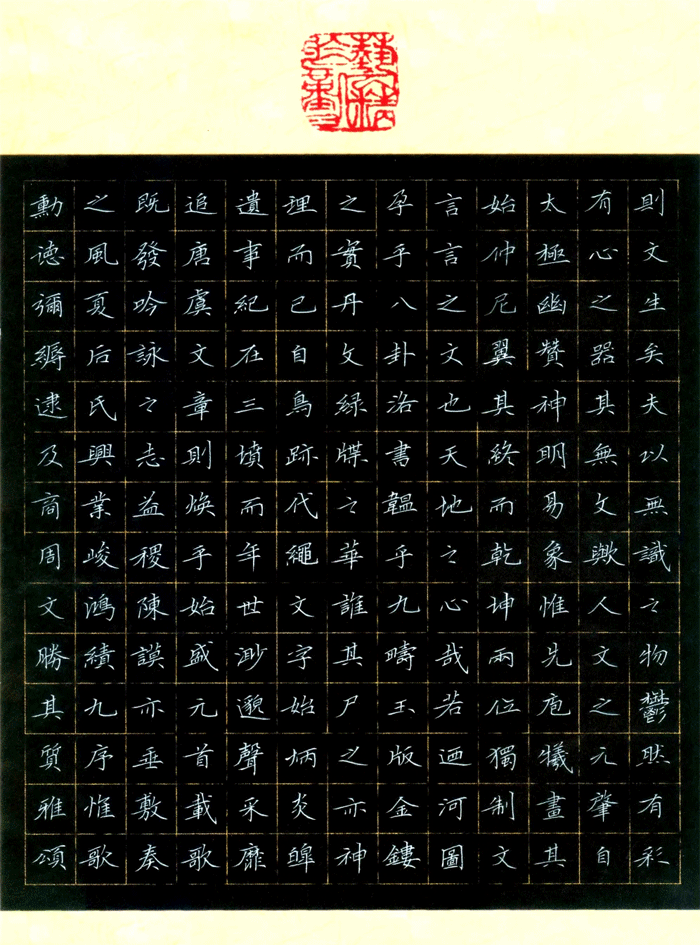 則文生矣夫以無識之物鬱然有彩
有心之器其無文歟人文之元肇自
太極幽贊神明易象惟先庖犧畫其
始仲尼翼其終而乾坤兩位獨制文
言言之文也天地之心哉若迺河圖
孕乎八卦洛書韞乎九疇玉版金鏤
之實丹文綠牒之華誰其尸之亦神
理而已自鳥跡代繩文字始炳炎皞
遺事紀在三墳而年世渺邈聲采靡
追唐虞文章則煥乎始盛元首載歌
既發吟詠之志益稷陳謨亦垂敷奏
之風夏后氏興業峻鴻績九序惟歌
勳德彌縟逮及商周文勝其質雅頌